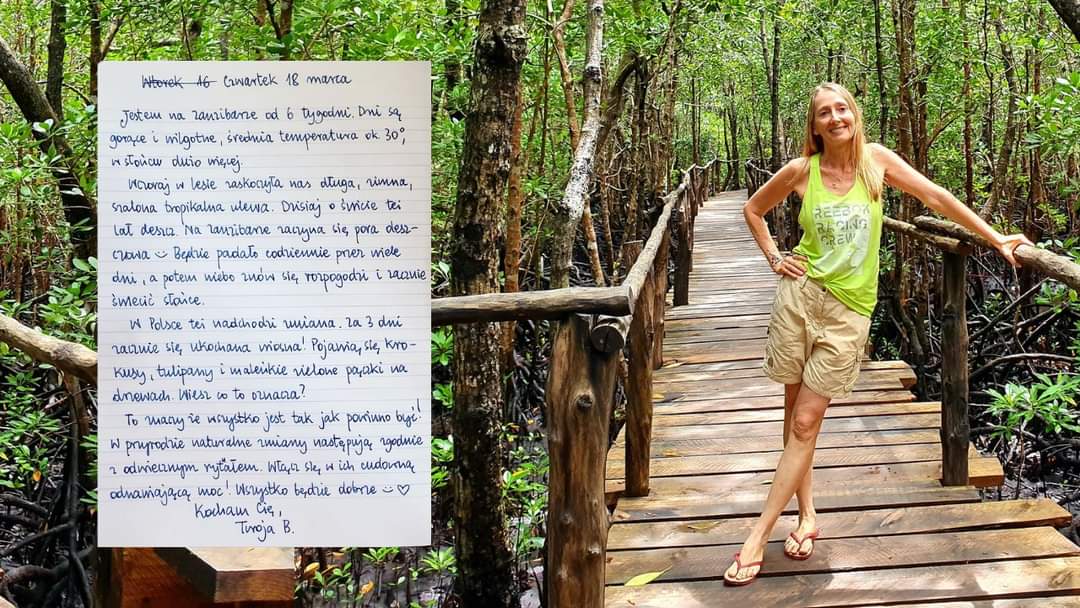 Wtorek 16 Czwartek 18 marca
Jestem na Zanzibarze od 6 tygodni. Dni są
gorące i wilgotne, średnia temperatura ok. 30°,
w słońcu dużo więcej.
Wczoraj w lesie zaskoczyła nas długa, zimna,
szalona tropikalna ulewa. Dzisiaj o świcie też
lał deszcz. Na Zanzibarze zaczyna się pora desz-
czowa :) Będzie padało codziennie przez wiele
dni, a potem niebo znów się rozpogodzi i zacznie
świecić słońce.
W Polsce też nadchodzi zmiana. Za 3 dni
zacznie się ukochana wiosna! Pojawią się kro-
kusy, tulipany i maleńkie zielone pąki na
drzewach. Wiesz co to oznacza?
To znaczy że wszystko jest tak jak powinno być!
W przyrodzie naturalne zmiany następują zgodnie
z odwiecznym rytmem. Włącz się w ich cudowną
odnawiającą moc! Wszystko będzie dobrze :) ♡
Kocham Cię,
Twoja B.
REEBOK
RACING
CREW